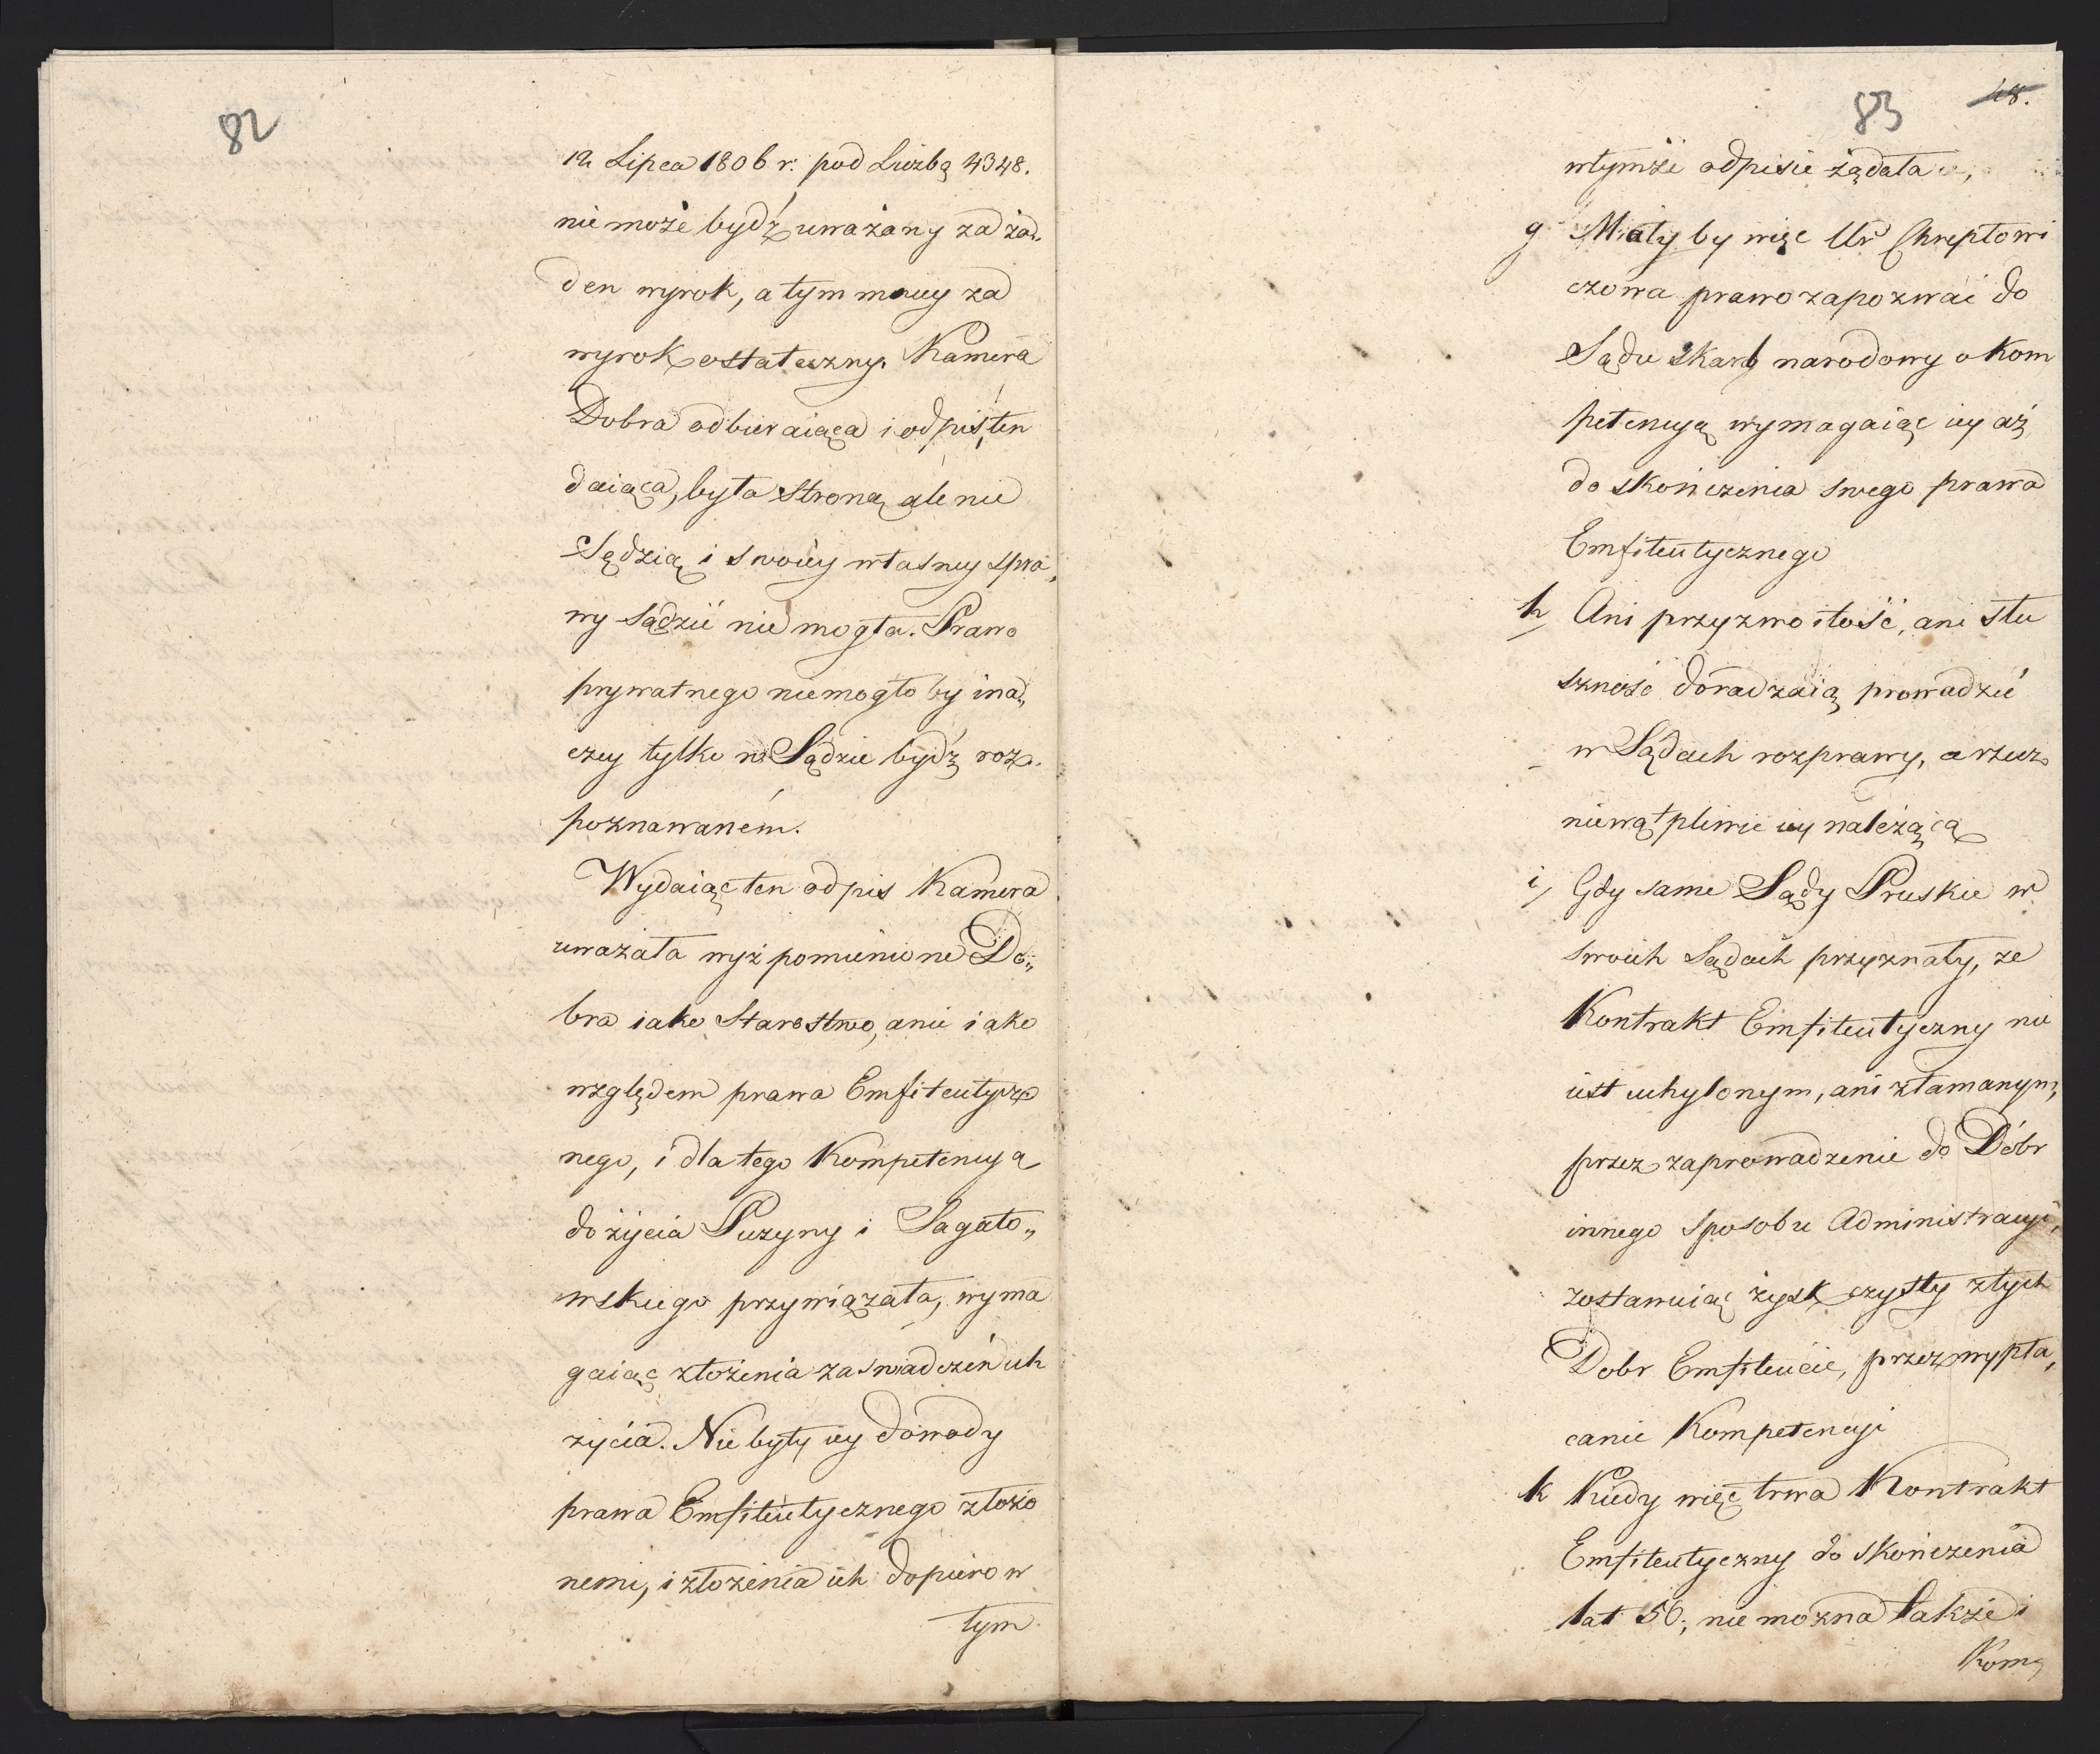 82
12 Lipca 1806 r: pod Liczbą 4348.
nie może bydź uważany za żad„
den wyrok, a tym mniey za
wyrok ostateczny. Kamera
Dobra odbieraiąca i odpis ten
daiąca, była stroną ale nie
Sędzią i swoiey własney spra„
wy sądzić nie mogła. Prawo
prywatnego niemogło by ina„
czey tylko w Sądzie bydź roz„
poznawaném.
Wydaiąc ten odpis Kamera
uważała wyż pomienione Do„
bra iako Starostwo, a nie iako
względem prawa Emfiteutycz
nego, i dla tego Kompetencyą
do życia Puzyny i Sagato„
wskiego przywiązała, wyma
gaiąc złożenia zaswiadczeń ich
życia. Nie były iey dowody
prawa Emfiteutycznego złożo
nemi, i złożenia ich dopiero w
tym
83 48.
wtymże odpisie żądała,
g Miałyby więc Ur Chreptowi
czowa prawo zapozwać do
Sądu skarb narodowy o Kom
petencyą wymagaiąc iey aż
do skończenia swego prawa
Emfiteutycznego
h, Ani przyzwoitość, ani słu
szność doradzaią prowadzić
w Sądach rozprawy, a rzecz
niewątpliwie iey należącą
i, Gdy same Sądy Pruskie w
swoich Sądach przyznały, ze
Kontrakt Emfiteutyczny nie
iest uchylonym, ani złamanym,
przez zaprowadzenie do Dóbr
innego sposobu Administracyi,
zostawuiąc zysk czysty z tych
Dobr Emfiteucie, przez wypła„
canie Kompetencyi
k Kiedy więc trwa Kontrakt
Emfiteutyczny do skończenia
lat 50; nie można także i
Kom„